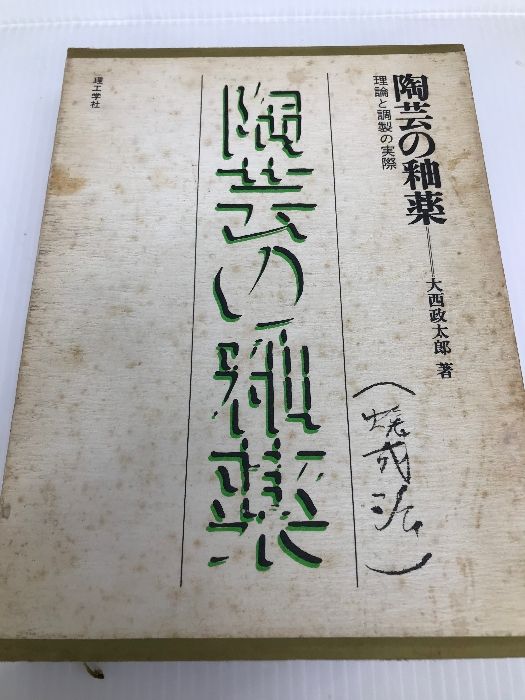 陶芸の釉薬──大西政太郎 著
理論と調製の実際
(焼成法)
陶芸の釉薬
理工学社